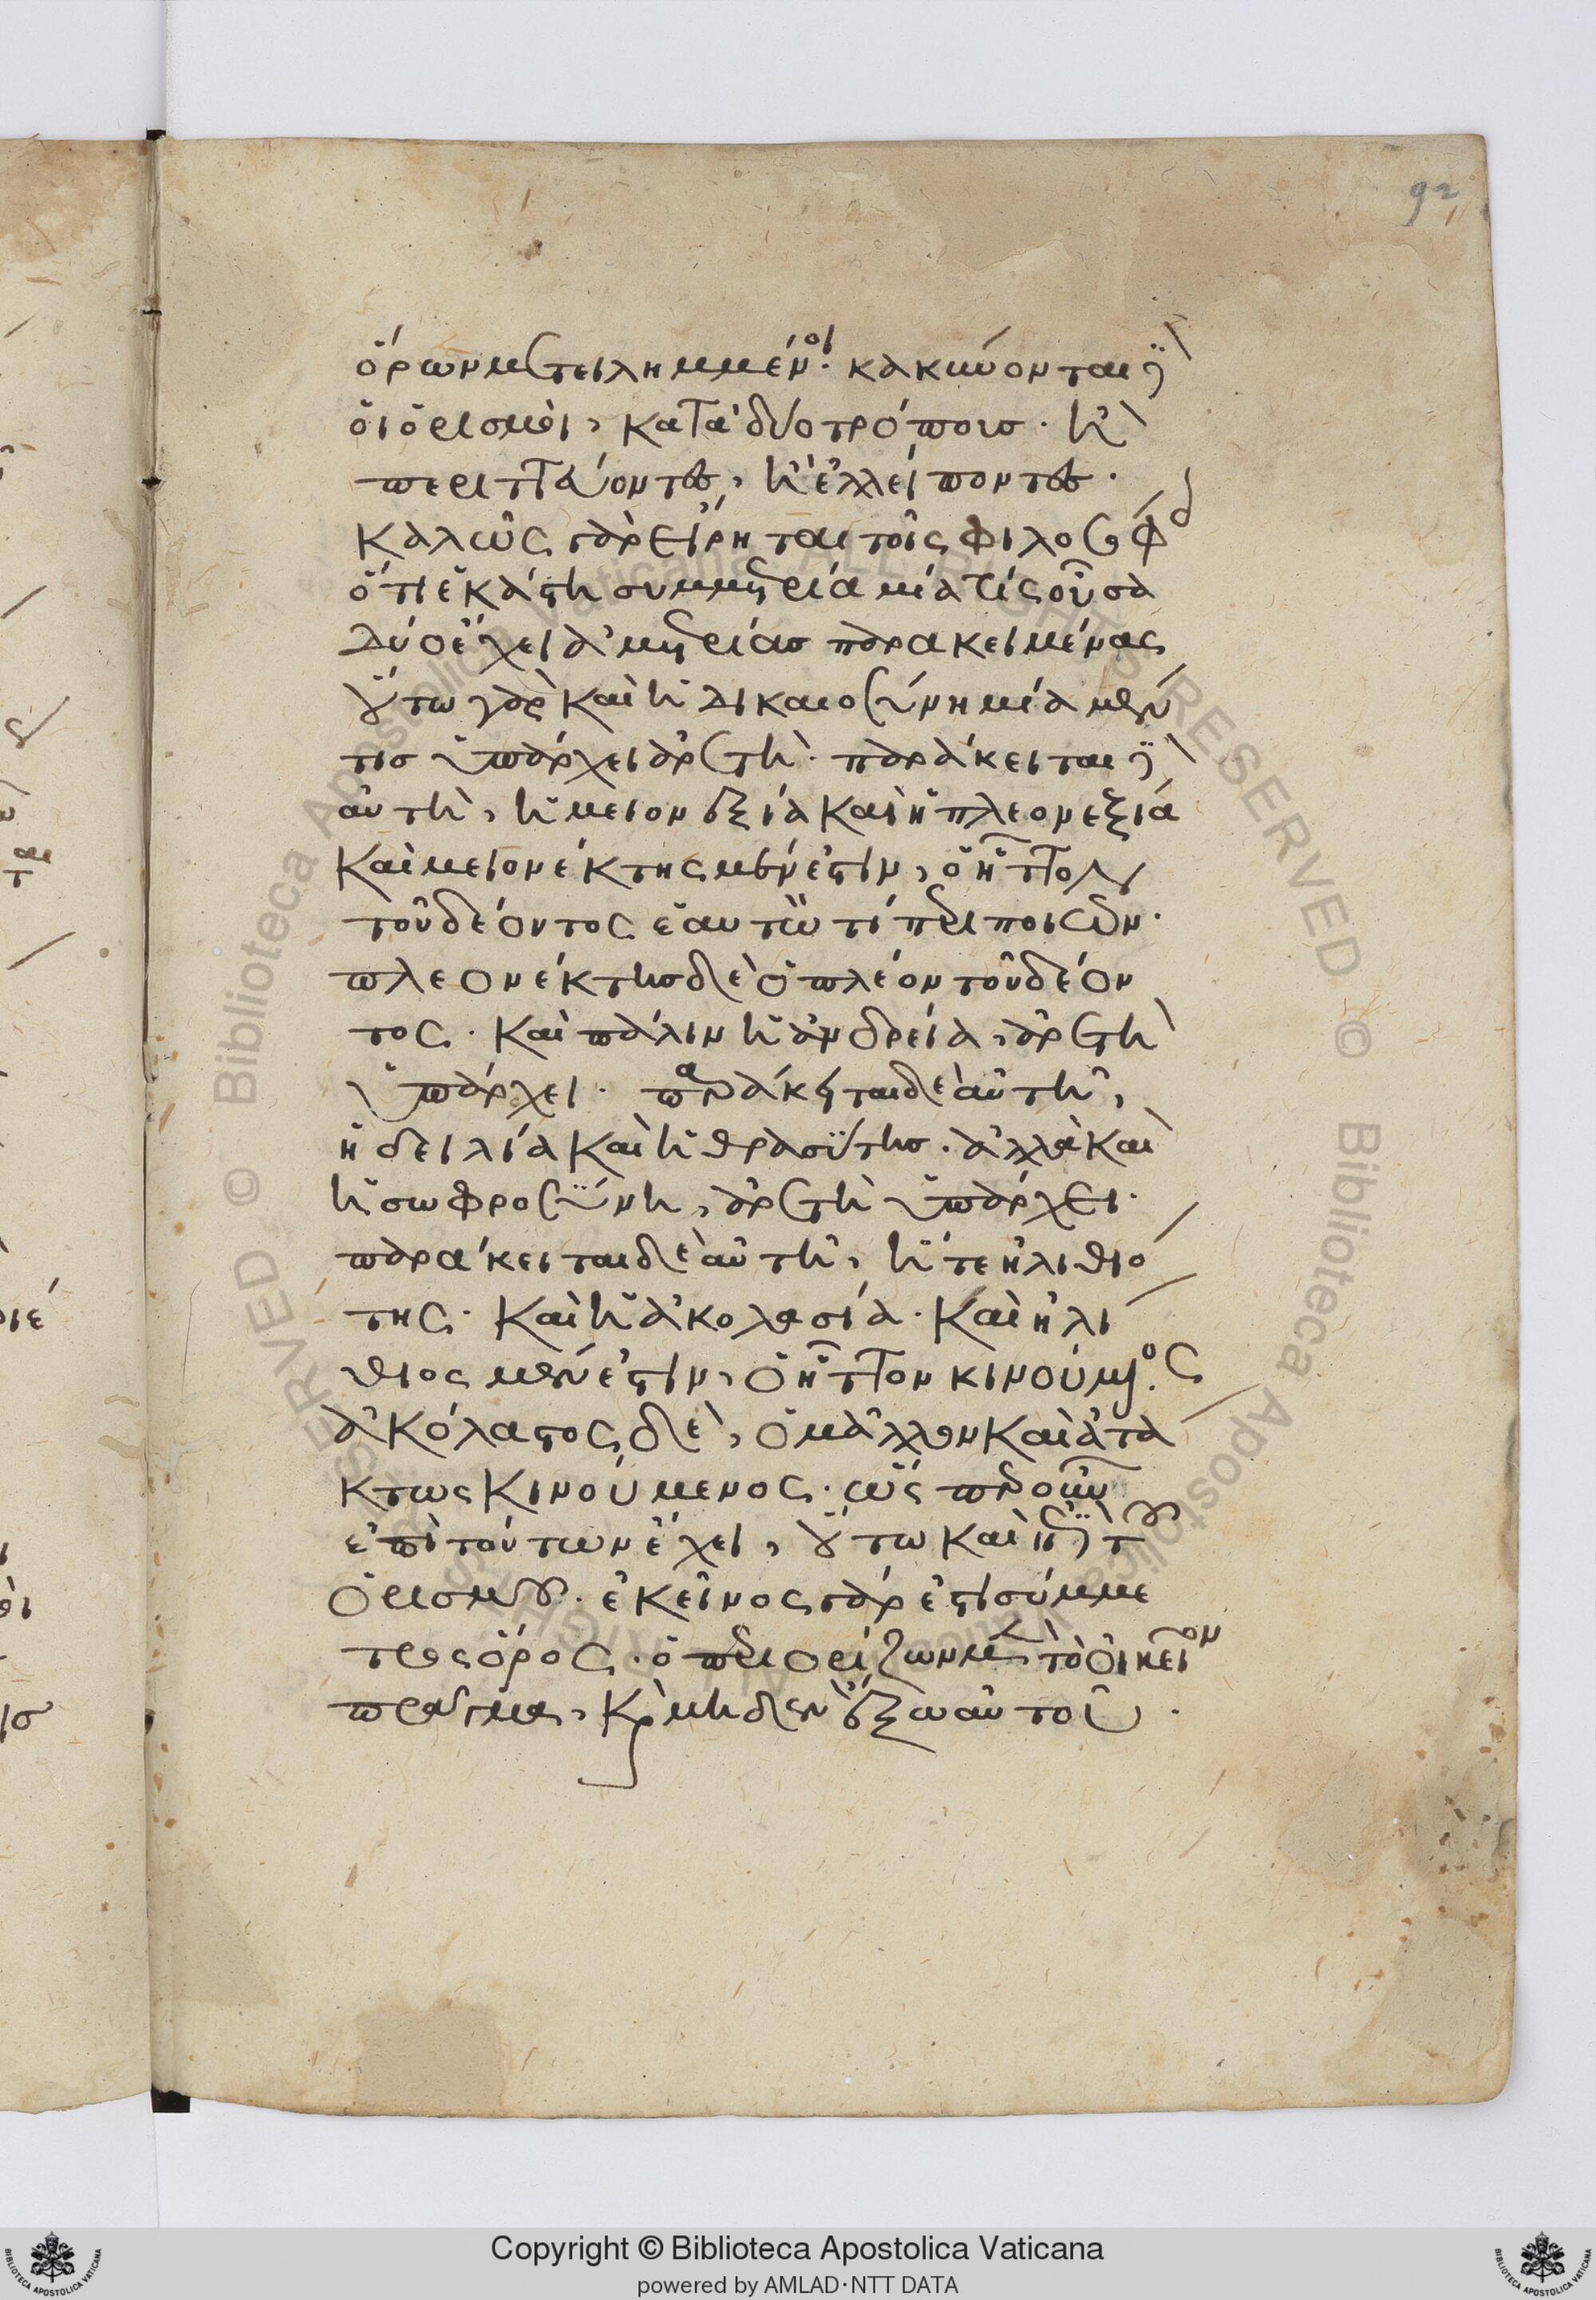 92
ὅρων μετειλημμένοι. κακύνονται δὲ
οἱ ὁρισμοὶ, κατὰ δύο τρόπους. ἢ
περιττεύοντες, ἢ ἐλλείποντες.
καλῶς γὰρ εἴρηται τοῖς φιλοσόφοις
ὅτι ἑκάστη συμμετρία μία τίς οὖσα
δύο ἔχει ἀμετρίας παρακειμένας
οὕτω γὰρ καὶ ἡ δικαιοσύνη μία μέν
τις ὑπάρχει ἀρετή. παράκειται δὲ
αὐτῇ, ἡ μειονεξία καὶ ἡ πλεονεξία
καὶ μειονέκτης μέν ἐστιν, ὁ ἧττον
τοῦ δέοντος ἑαυτῷ τί περιποιῶν.
πλεονέκτης δὲ ὁ πλέον τοῦ δέον
τος. καὶ πάλιν ἡ ἀνδρεία, ἀρετὴ
ὑπάρχει. παράκειται δὲ αὐτῇ,
ἡ δειλία καὶ ἡ θρασύτης. ἀλλὰ καὶ
ἡ σωφροσύνη, ἀρετὴ ὑπάρχει.
παράκειται δὲ αὐτῇ, ἥ τε ἠλιθιό
της. καὶ ἡ ἀκολασία. καὶ ἠλί
θιος μέν ἐστιν, ὁ ἧττον κινούμενος.
ἀκόλαστος δὲ, ὁ μᾶλλον καὶ ἀτά
κτως κινούμενος. ὥσπερ οὖν
ἐπὶ τούτων ἔχει, οὕτω καὶ ἐπὶ τοῦ
ὁρισμοῦ. ἐκεῖνος γάρ ἐστι σύμμε
τρος ὅρος. ὁ περιορίζων μὲν τὸ οἰκεῖον
πρᾶγμα, καὶ μηδὲν ἔξω αὐτοῦ.
Copyright © Biblioteca Apostolica Vaticana
powered by AMLAD·NTT DATA